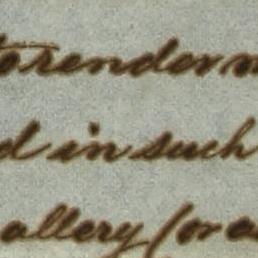 to render m
d in such
allery (or a